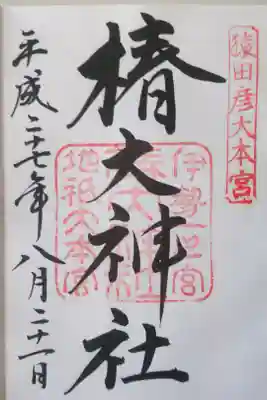 猿田彦大本宮
椿大神社
伊勢一之宮
地祇大本宮
平成二十七年八月二十一日